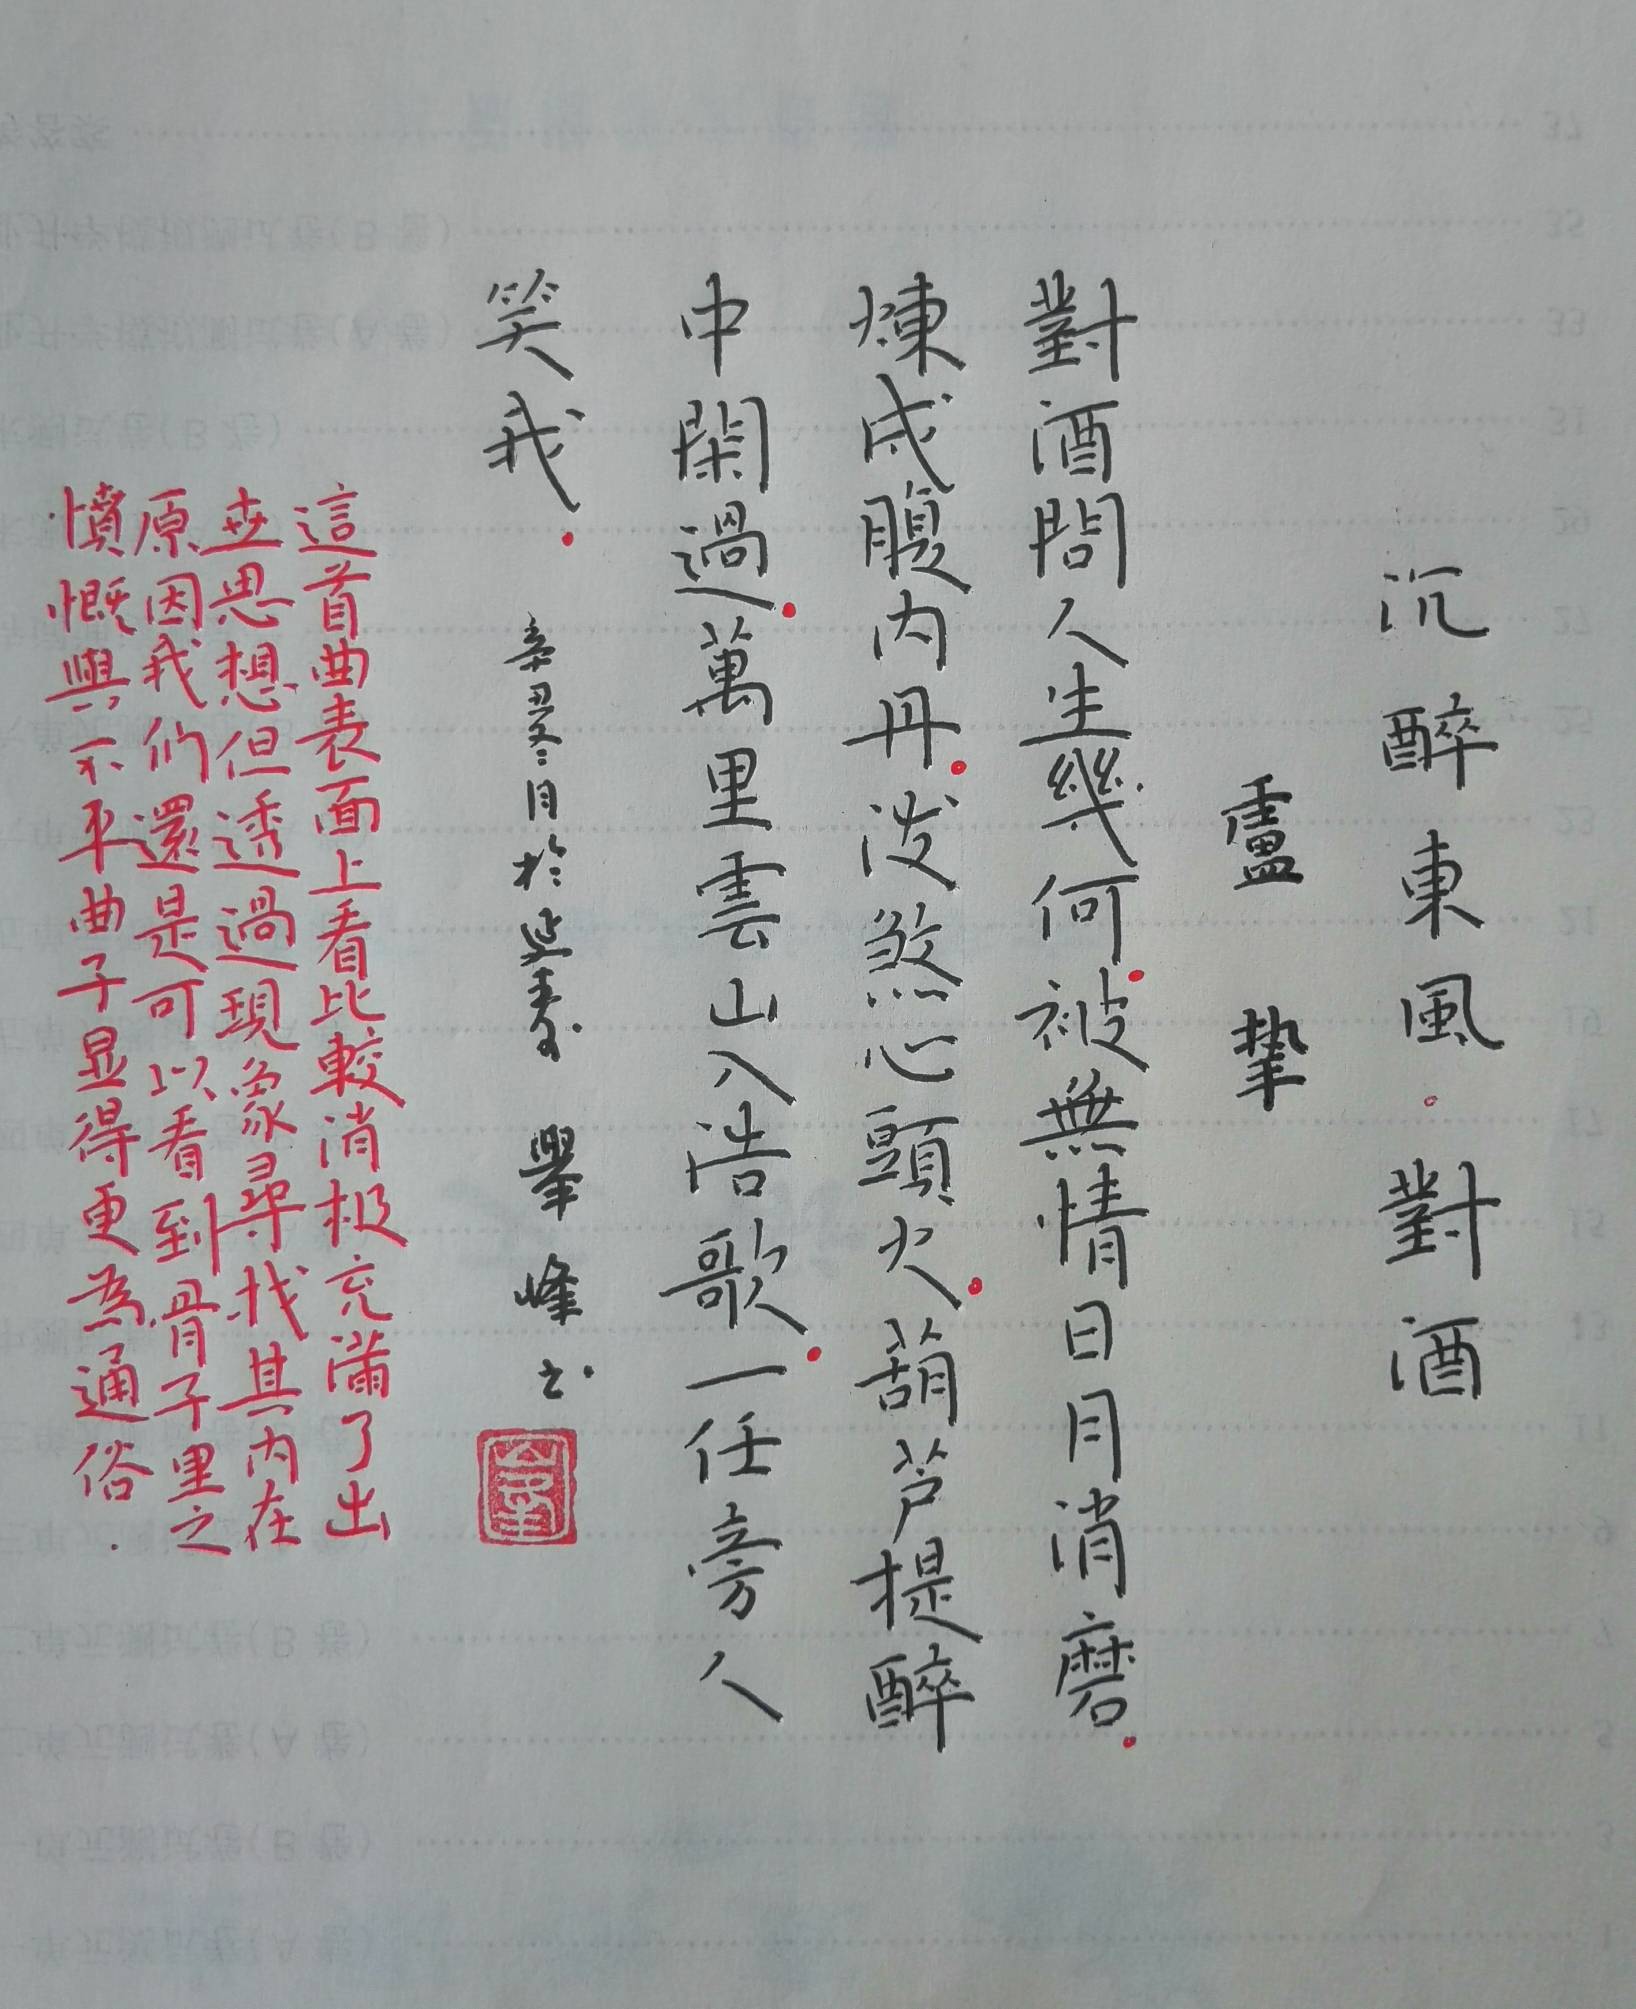 沉醉東風·對酒
盧摯
對酒問人生幾何。被無情日月消磨。
煉成腹內丹。泼煞心頭火。葫芦提醉
中閑過。萬里雲山入浩歌。一任旁人
笑我。
辛丑冬月於 畢峰书
這首曲表面上看比較消极充滿了出
世思想但透過現象尋找其內在
原因我们還是可以看到骨子里之
憤慨與不平曲子显得更為通俗.